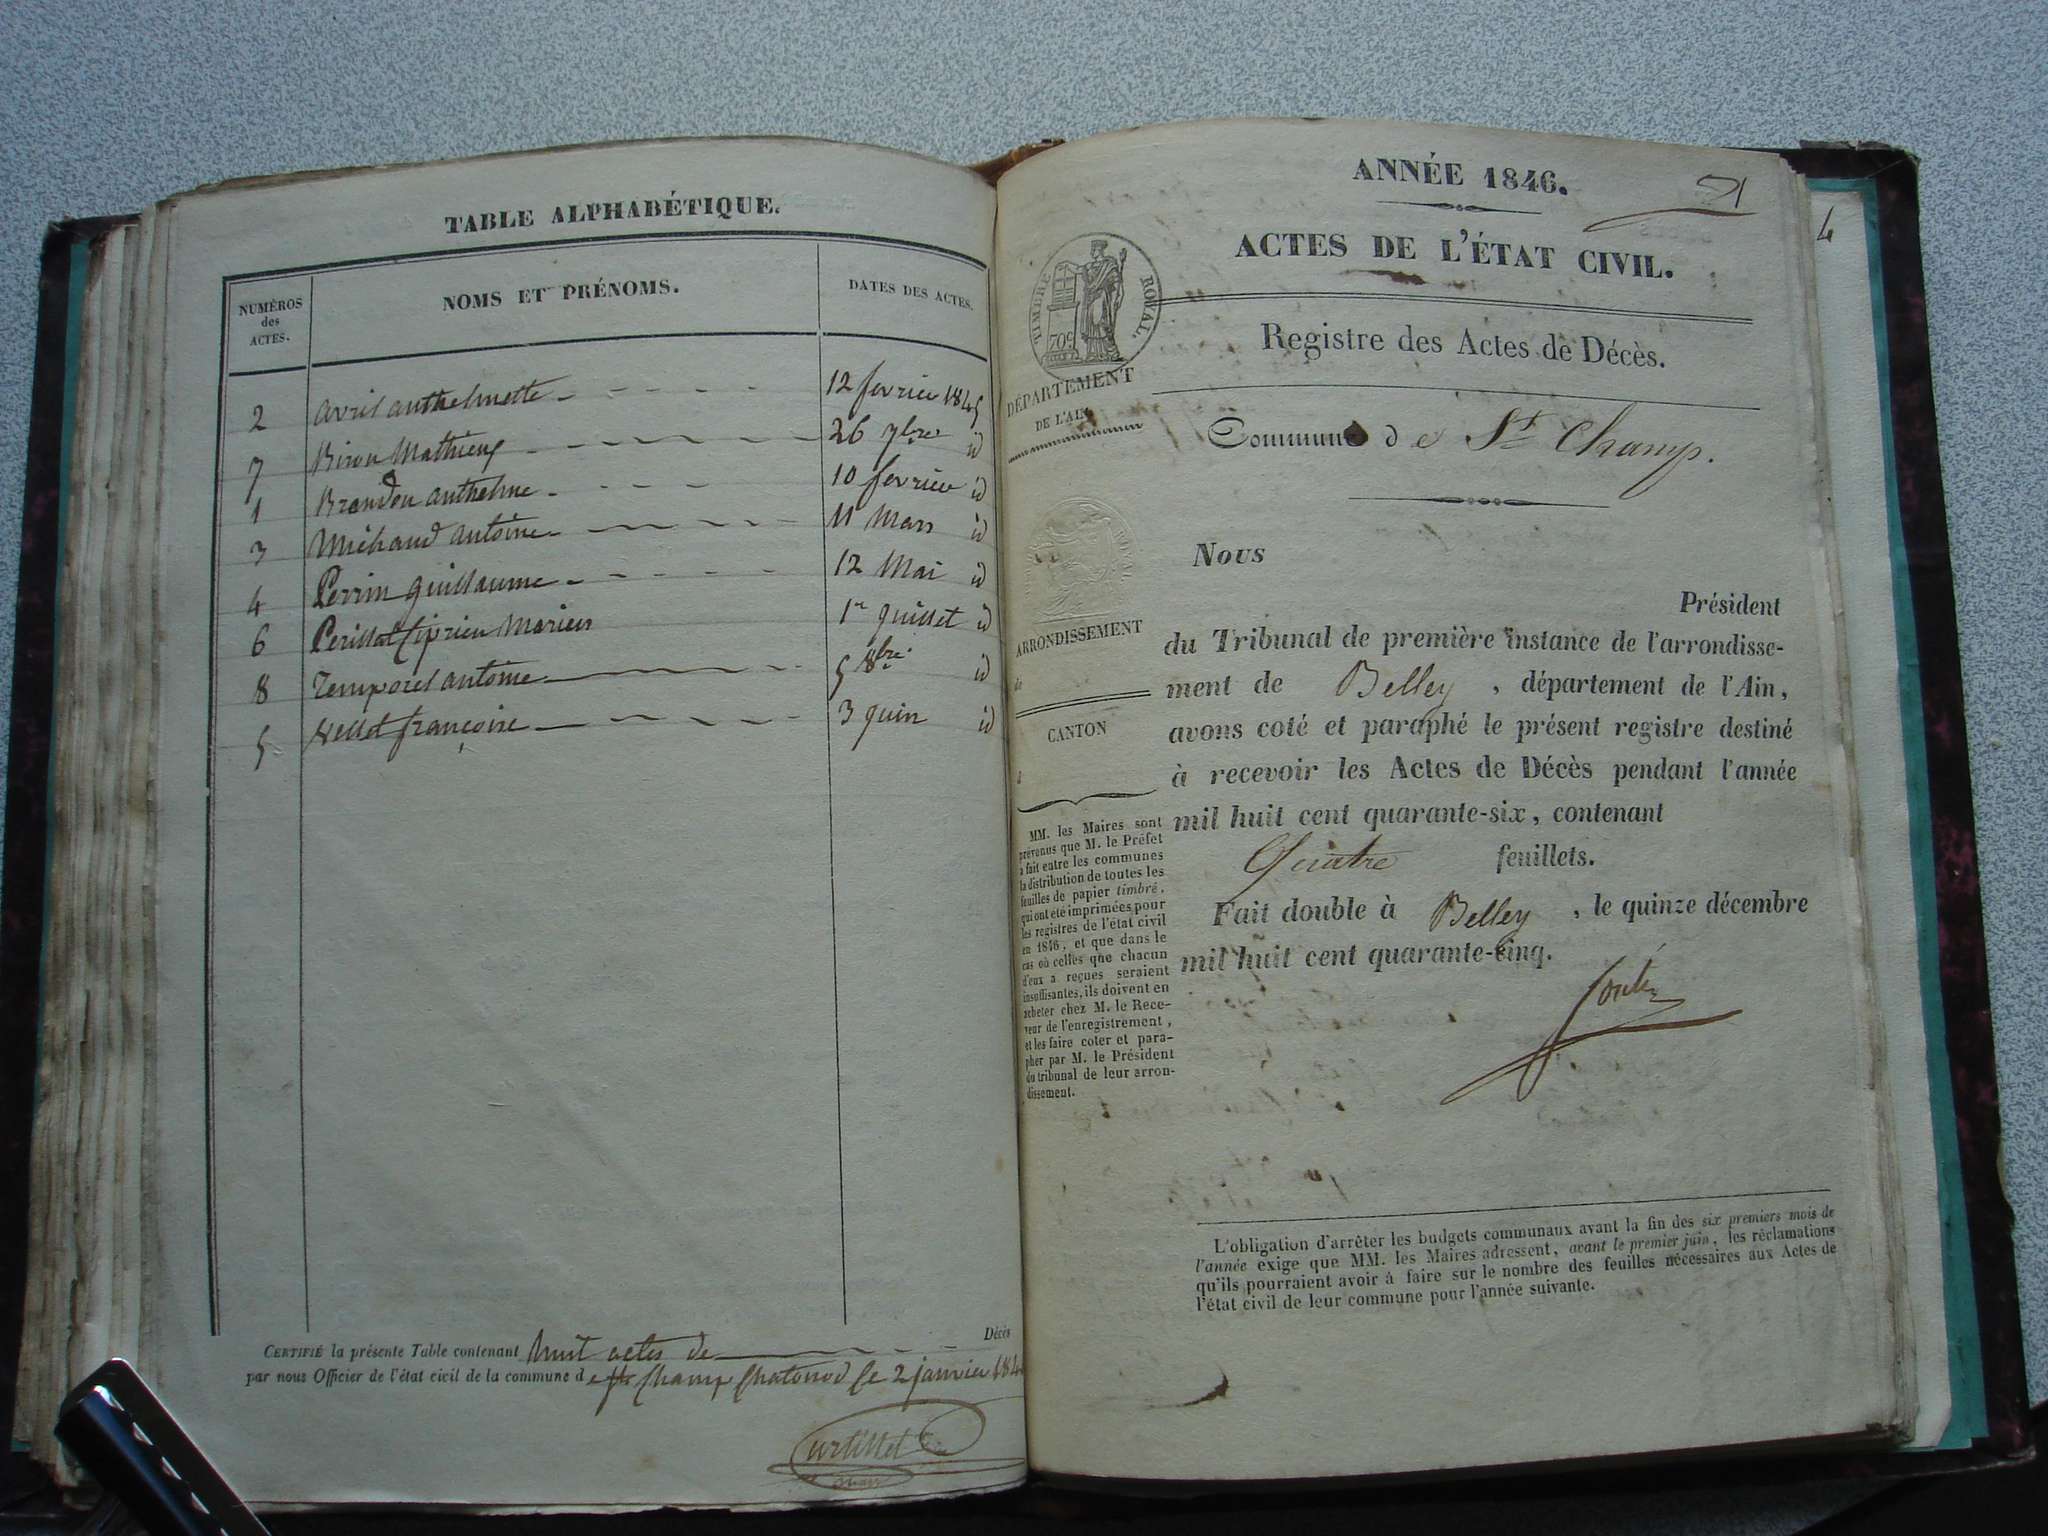 TABLE ALPHABÉTIQUE.
NUMÉROS
des
ACTES.
NOMS ET PRÉNOMS.
DATES DES ACTES.
2 Avril anthelmette 12 fevrier 1845
7 Biron Mathieux 26 7bre id
1 Brandon anthelme 10 fevrier id
3 Michaud antoine 11 Mars id
4 Perrin guillaume 12 Mai id
6 Perillat Ciprien Marieus 1er Juillet id
8 Temporel antoine 5 8bre id
5 françoise 3 Juin id
CERTIFIÉ la présente Table contenant huit actes de Décès
par nous Officier de l'état civil de la commune de St Champ Chatonod le 2 janvier
Curtillet
ANNÉE 1846.
4
ACTES DE L'ÉTAT CIVIL.
TIMBRE ROYAL.
70c
Registre des Actes de Décès.
DÉPARTEMENT
DE L'AIN
Commune de St Champ.
ARRONDISSEMENT
de
CANTON
d
MM. les Maires sont
prévenus que M. le Préfet
a fait entre les communes
la distribution de toutes les
feuilles de papier timbré,
qui ont été imprimées pour
les registres de l'état civil
en 1846, et que dans le
cas où celles que chacun
d'eux a reçues seraient
insuffisantes, ils doivent en
acheter chez M. le Rece-
veur de l'enregistrement,
et les faire coter et para-
pher par M. le Président
du tribunal de leur arron-
dissement.
Nous
Président
du Tribunal de première instance de l'arrondisse-
ment de Belley, département de l'Ain,
avons coté et paraphé le présent registre destiné
à recevoir les Actes de Décès pendant l'année
mil huit cent quarante-six, contenant
Quatre feuillets.
Fait double à Belley, le quinze décembre
mil huit cent quarante-cinq.
L'obligation d'arrêter les budgets communaux avant la fin des six premiers mois de
l'année exige que MM. les Maires adressent, avant le premier juin, les réclamations
qu'ils pourraient avoir à faire sur le nombre des feuilles nécessaires aux Actes de
l'état civil de leur commune pour l'année suivante.